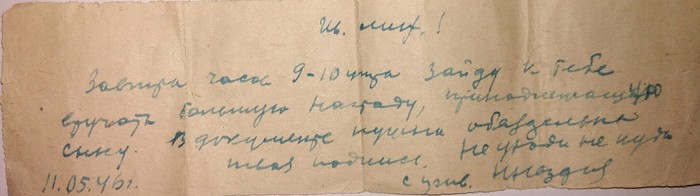 Ив. Мих.!
Завтра часов 9-10 утра зайду к тебе
вручать большую награду, принадлежащую
сыну. В документе нужна обязательно
твоя подпись. Не уходи не куда
11.05.46г. с уваж.